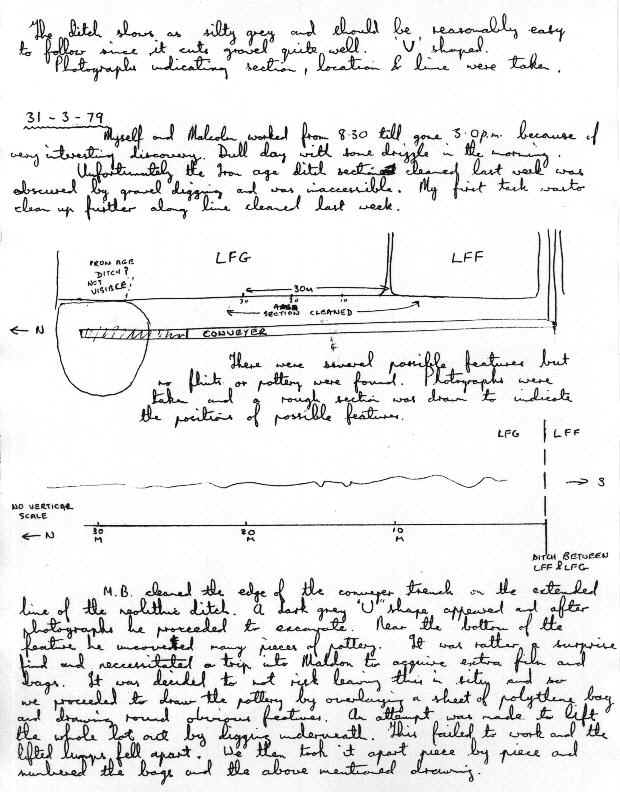 The ditch shows as silty grey and should be reasonably easy
to follow since it cuts gravel quite well. 'U' shaped.
Photographs indicating section, location & line were taken.
31-3-79
Myself and Malcolm worked from 8.30 till gone 3.0 p.m. because of
very interesting discovery. Dull day with some drizzle in the morning.
Unfortunately the Iron age ditch section cleaned last week was
obscured by gravel digging and was inaccessible. My first task was to
clean up further along line cleaned last week.
IRON AGE
DITCH?
NOT
VISIBLE!
LFG
LFF
30m
30
20
10
SECTION CLEANED
← N
CONVEYER
There were several possible features but
no flints or pottery were found. Photographs were
taken and a rough section was drawn to indicate
the positions of possible features.
LFG
LFF
→ S
NO VERTICAL
SCALE
← N
30
M
20
M
10
M
DITCH BETWEEN
LFF & LFG
M.B. cleaned the edge of the conveyer trench on the extended
line of the neolithic ditch. A dark grey "U" shape appeared and after
photographs he proceeded to excavate. Near the bottom of the
feature he uncovered many pieces of pottery. It was rather a surprise
find and necessitated a trip into Maldon to acquire extra film and
bags. It was decided to not risk leaving this in situ and so
we proceeded to draw the pottery by overlaying a sheet of polythene bag
and drawing round obvious features. An attempt was made to lift
the whole lot out by digging underneath. This failed to work and the
lifted lumps fell apart. We then took it apart piece by piece and
numbered the bags and the above mentioned drawing.